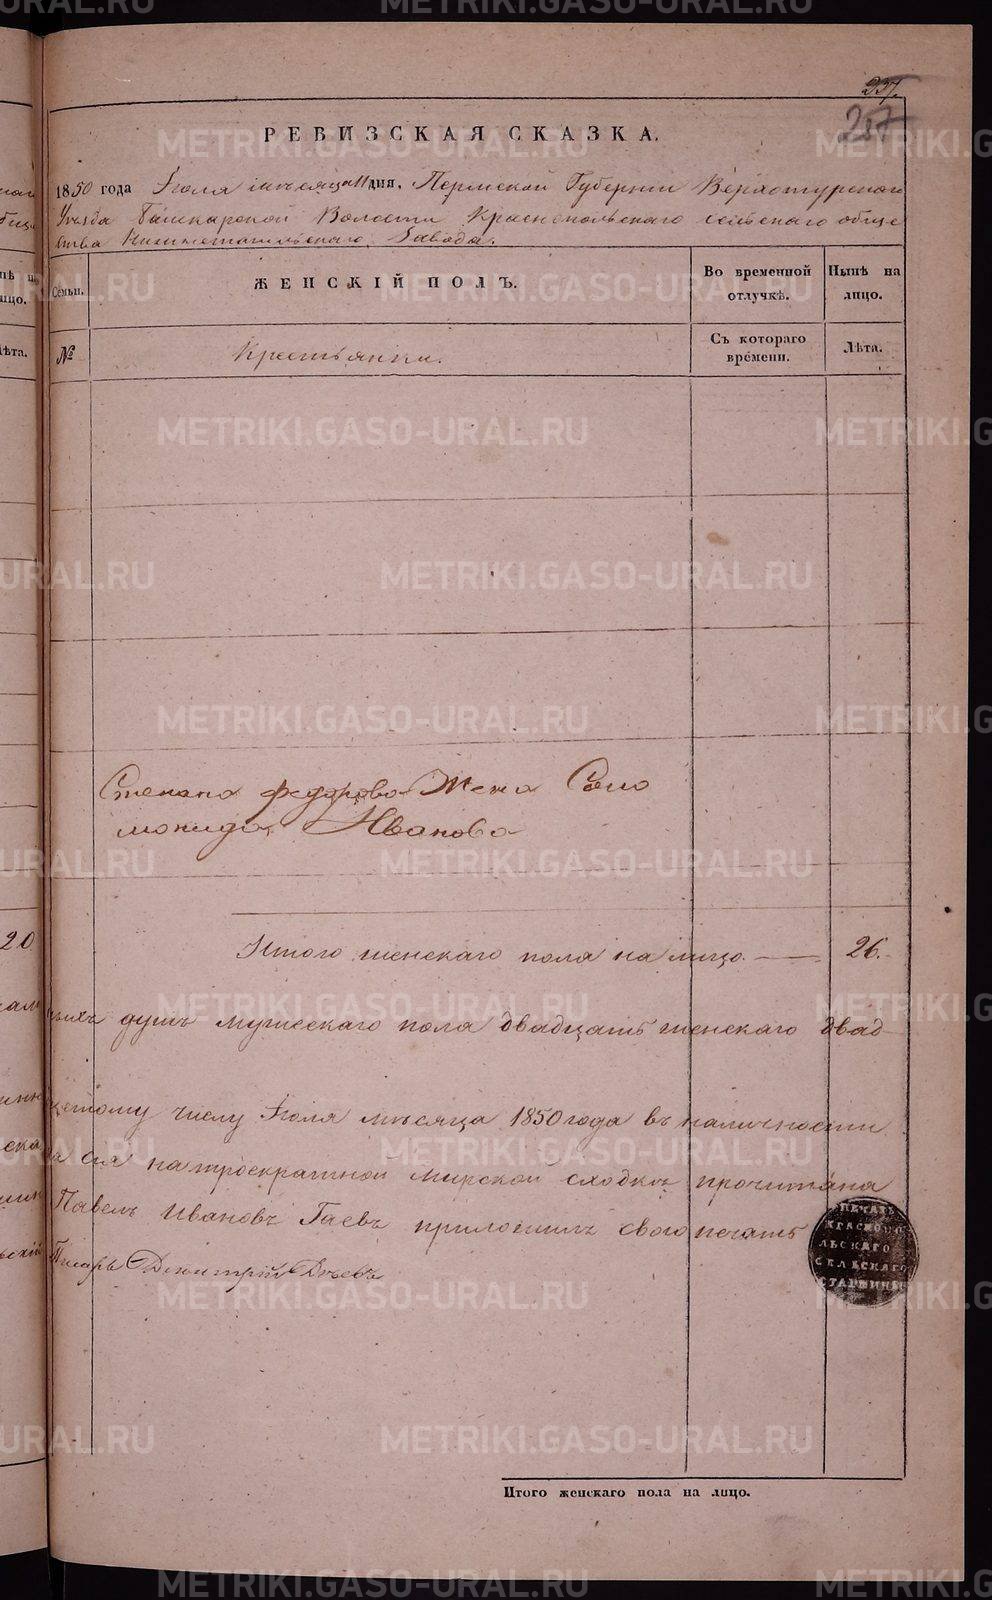 237.
237
РЕВИЗСКАЯ СКАЗКА.
1850 года Іюля месяца 11 дня. Пермской Губерніи Верхотурского
Уезда Башкарской Волости Краснопольскаго сельскаго обще
ства Нижнетагильскаго Завода.
Семьи. ЖЕНСКІЙ ПОЛЪ. Во временной отлучкѣ. Нынѣ на лицо.
№ Крестьянки. Съ котораго времени. Лѣта.
Степана Федорова Жена Соло
монида Иванова
Итого женскаго пола на лицо — 26.
ныхъ душъ мужескаго пола двадцать женскаго двад-
цетому числу Іюля месяца 1850 года въ наличности
а сія на троекратной мирской сходке прочитана
Павелъ Ивановъ Гаевъ приложилъ свою печать
Писарь Димитрій
ПЕЧАТЬ
КРАСНОПО
ЛЬСКАГО
СЕЛЬСКАГО
СТАРШИНЫ
Итого женскаго пола на лицо.
20
METRIKI.GASO-URAL.RU